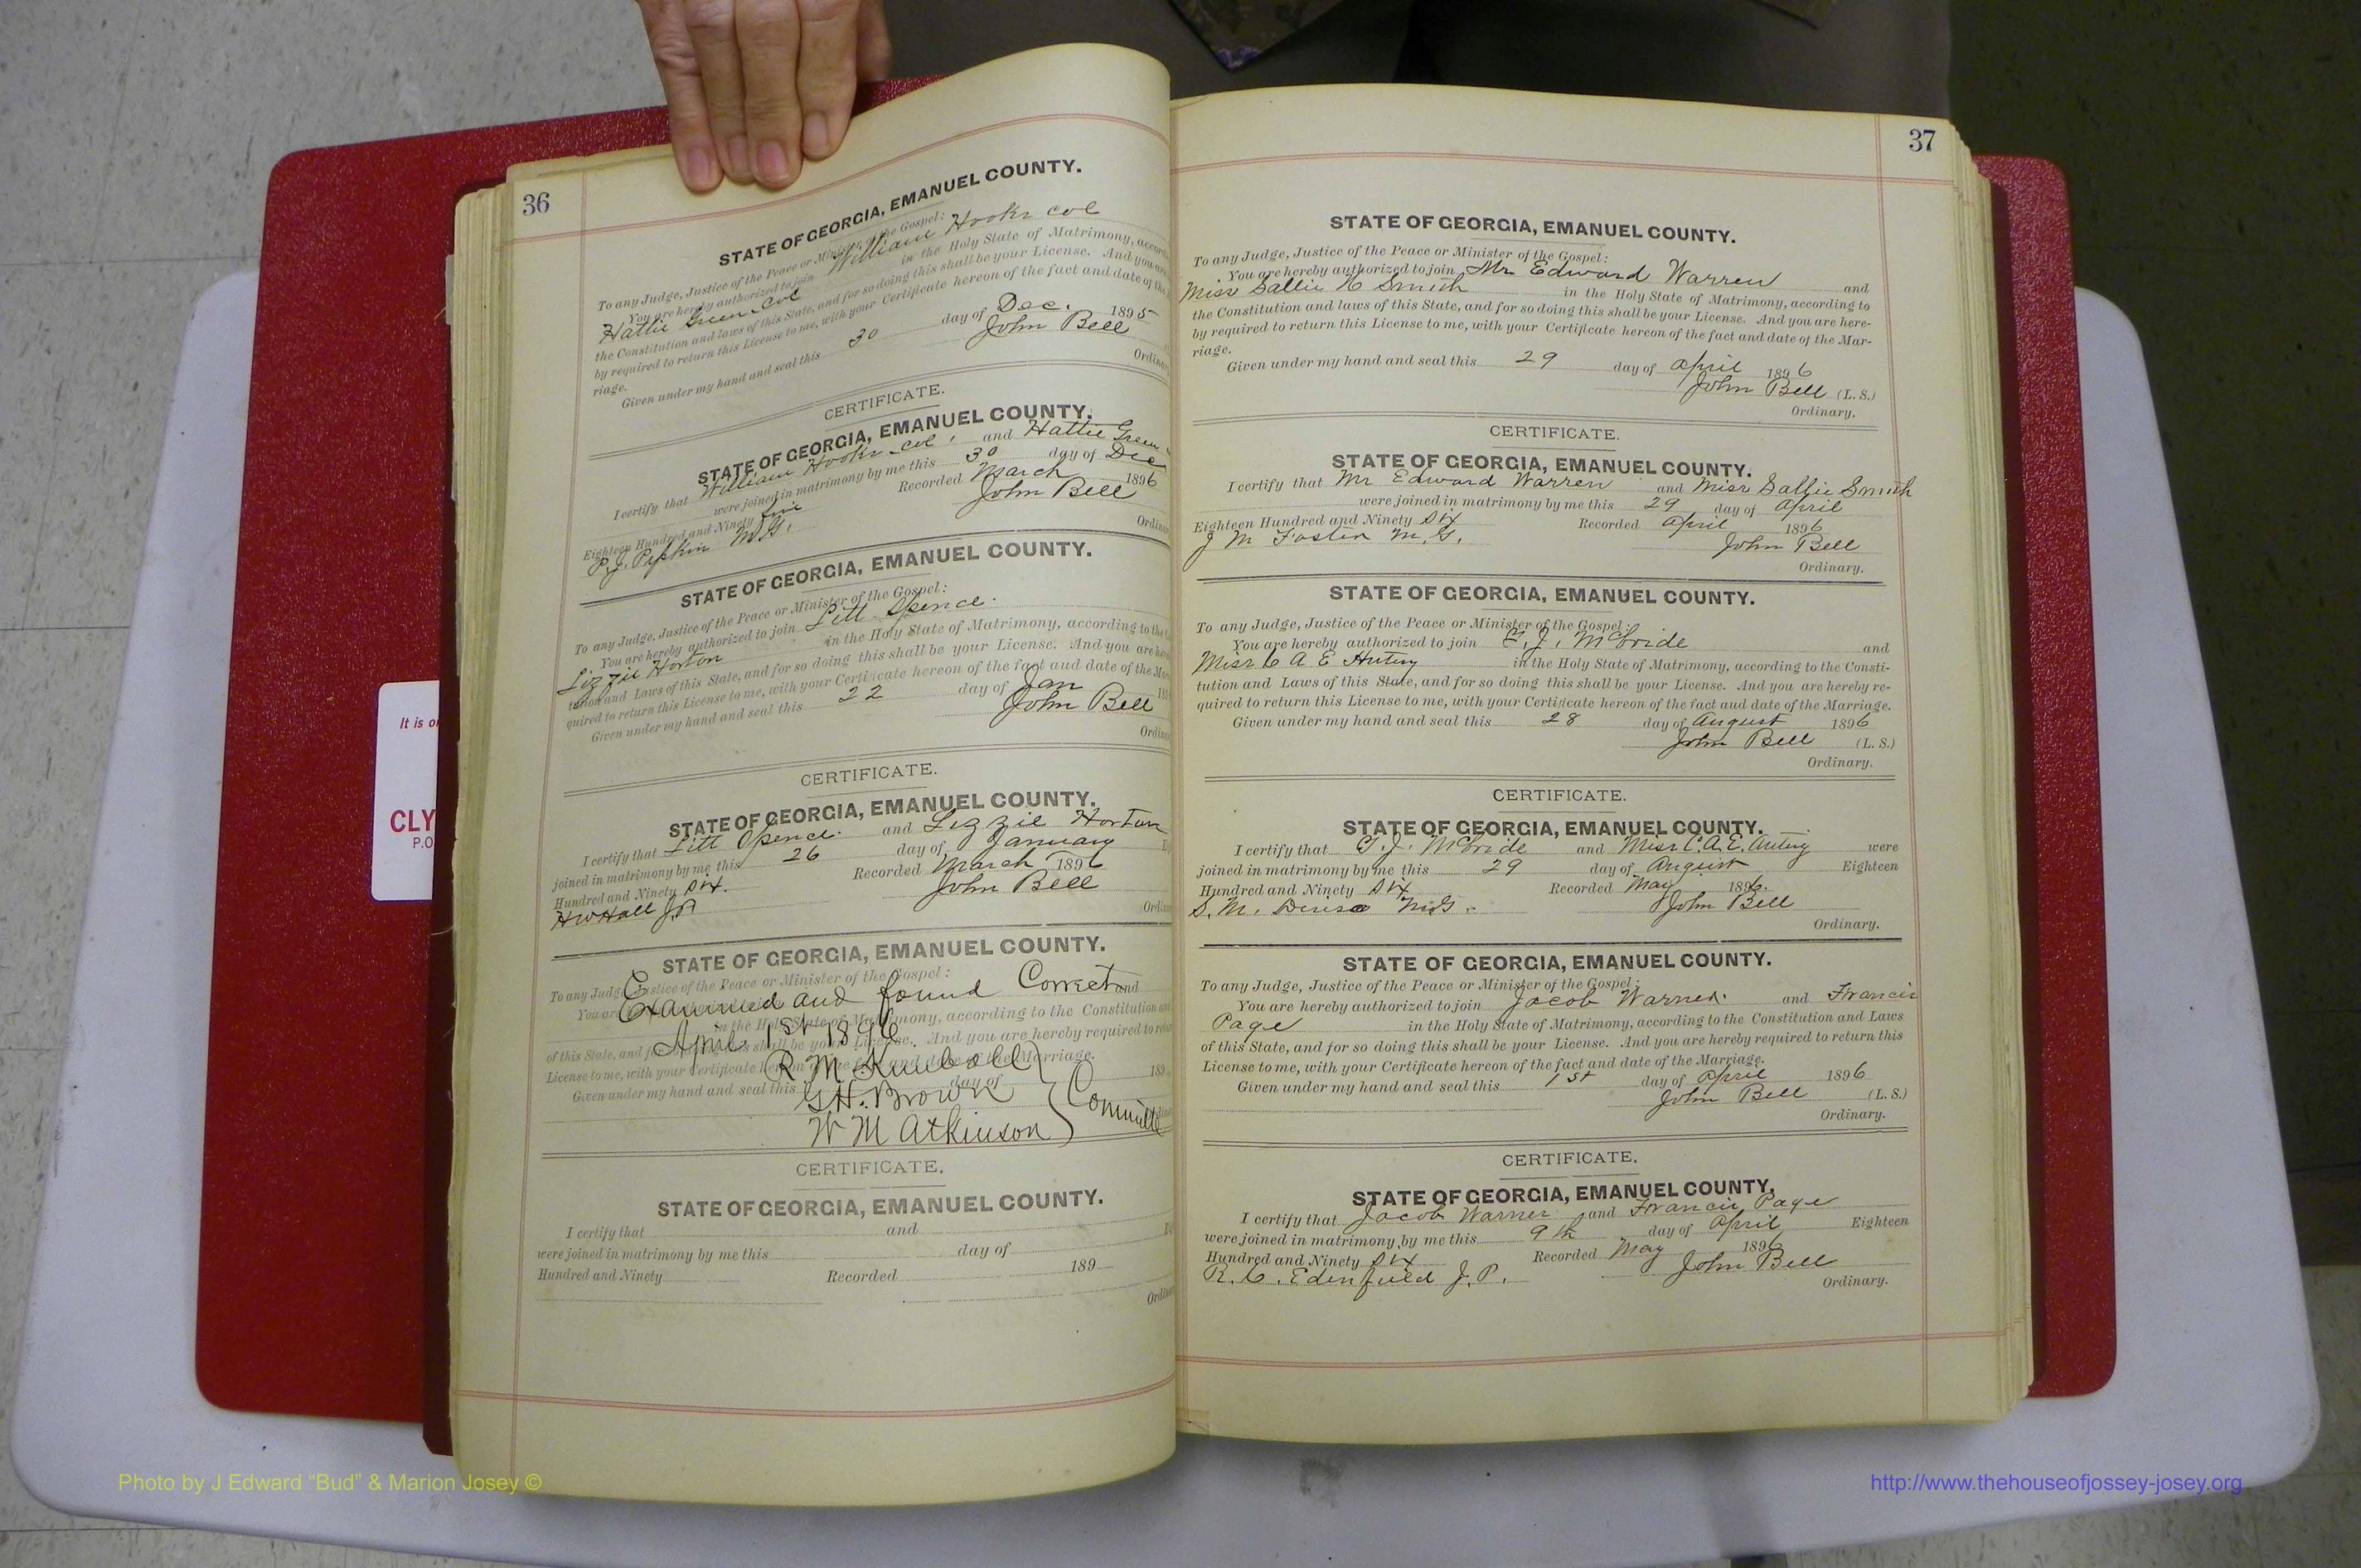 36
STATE OF GEORGIA, EMANUEL COUNTY.
To any Judge, Justice of the Peace or Minister of the Gospel:
You are hereby authorized to join William Hooks col
Hattie Green col in the Holy State of Matrimony, accord
the Constitution and laws of this State, and for so doing this shall be your License. And you are
by required to return this License to me, with your Certificate hereon of the fact and date of the
riage.
Given under my hand and seal this 30 day of Dec. 1895
John Bell
Ordina
CERTIFICATE.
STATE OF GEORGIA, EMANUEL COUNTY.
I certify that William Hooks col, and Hattie Green
were joined in matrimony by me this 30 day of Dec
Eighteen Hundred and Ninety five Recorded March 1896
P. J. Pipkin M.G. John Bell
Ordina
STATE OF GEORGIA, EMANUEL COUNTY.
To any Judge, Justice of the Peace or Minister of the Gospel:
You are hereby authorized to join Litt Spence.
Lizzie Horton in the Holy State of Matrimony, according to the
tution and Laws of this State, and for so doing this shall be your License. And you are he
quired to return this License to me, with your Certificate hereon of the fact and date of the Ma
Given under my hand and seal this 22 day of Jan 18
John Bell
Ordina
CERTIFICATE.
STATE OF GEORGIA, EMANUEL COUNTY.
I certify that Litt Spence. and Lizzie Horton
joined in matrimony by me this 26 day of January
Hundred and Ninety six. Recorded March 1896
HW Hall JP John Bell
Ordina
STATE OF GEORGIA, EMANUEL COUNTY.
To any Judge, Justice of the Peace or Minister of the Gospel:
Examined and found Correct and
in the Holy State of Matrimony, according to the Constitution and
April 1st 1896
of this State, and for so doing this shall be your License. And you are hereby required to retu
License to me, with your Certificate hereon of the fact and date of the Marriage.
R M Kimball
Given under my hand and seal this day of 189
G H. Brown
Committee
W M Atkinson
CERTIFICATE.
STATE OF GEORGIA, EMANUEL COUNTY.
I certify that and
were joined in matrimony by me this day of
Hundred and Ninety Recorded 189
Ordina
37
STATE OF GEORGIA, EMANUEL COUNTY.
To any Judge, Justice of the Peace or Minister of the Gospel:
You are hereby authorized to join Mr Edward Warren and
Miss Sallie H Smith in the Holy State of Matrimony, according to
the Constitution and laws of this State, and for so doing this shall be your License. And you are here-
by required to return this License to me, with your Certificate hereon of the fact and date of the Mar-
riage.
Given under my hand and seal this 29 day of April 1896
John Bell (L. S.)
Ordinary.
CERTIFICATE.
STATE OF GEORGIA, EMANUEL COUNTY.
I certify that Mr Edward Warren and Miss Sallie Smith
were joined in matrimony by me this 29 day of April
Eighteen Hundred and Ninety six Recorded April 1896
J M Foster M. G. John Bell
Ordinary.
STATE OF GEORGIA, EMANUEL COUNTY.
To any Judge, Justice of the Peace or Minister of the Gospel:
You are hereby authorized to join T. J. McBride and
Miss C A E Autry in the Holy State of Matrimony, according to the Consti-
tution and Laws of this State, and for so doing this shall be your License. And you are hereby re-
quired to return this License to me, with your Certificate hereon of the fact and date of the Marriage.
Given under my hand and seal this 28 day of August 1896
John Bell (L. S.)
Ordinary.
CERTIFICATE.
STATE OF GEORGIA, EMANUEL COUNTY.
I certify that T. J. McBride and Miss C. A. E. Autry were
joined in matrimony by me this 29 day of August Eighteen
Hundred and Ninety six Recorded May 1896.
S. M. M.G. John Bell
Ordinary.
STATE OF GEORGIA, EMANUEL COUNTY.
To any Judge, Justice of the Peace or Minister of the Gospel:
You are hereby authorized to join Jacob Warner and Francis
Page in the Holy State of Matrimony, according to the Constitution and Laws
of this State, and for so doing this shall be your License. And you are hereby required to return this
License to me, with your Certificate hereon of the fact and date of the Marriage.
Given under my hand and seal this 1st day of April 1896
John Bell (L. S.)
Ordinary.
CERTIFICATE.
STATE OF GEORGIA, EMANUEL COUNTY.
I certify that Jacob Warner and Francis Page
were joined in matrimony by me this 9th day of April Eighteen
Hundred and Ninety six Recorded May 1896
R. C. Edenfield J. P. John Bell
Ordinary.
It is o
CLY
P.O
Photo by J Edward "Bud" & Marion Josey ©
http://www.thehouseofjossey-josey.org